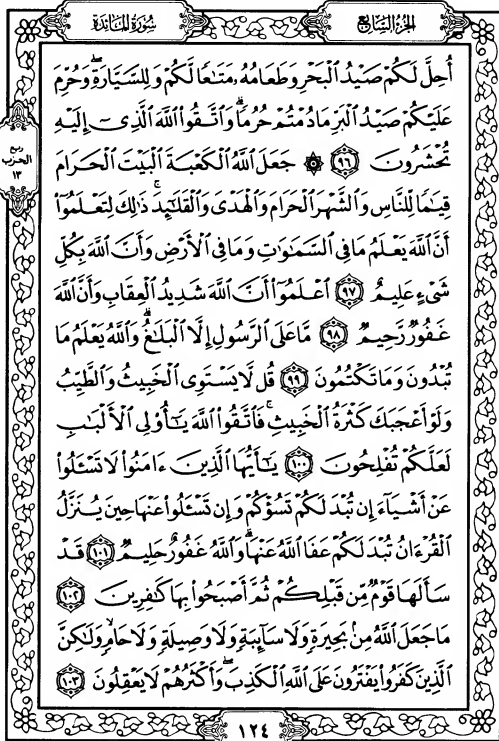 الجزء السابع
سورة المائدة
أُحِلَّ لَكُمْ صَيْدُ ٱلْبَحْرِ وَطَعَامُهُۥ مَتَٰعًا لَّكُمْ وَلِلسَّيَّارَةِ ۖ وَحُرِّمَ
عَلَيْكُمْ صَيْدُ ٱلْبَرِّ مَا دُمْتُمْ حُرُمًا ۗ وَٱتَّقُوا۟ ٱللَّهَ ٱلَّذِىٓ إِلَيْهِ
تُحْشَرُونَ ٩٦ ۞ جَعَلَ ٱللَّهُ ٱلْكَعْبَةَ ٱلْبَيْتَ ٱلْحَرَامَ
ربع
الحزب
١٣
قِيَٰمًا لِّلنَّاسِ وَٱلشَّهْرَ ٱلْحَرَامَ وَٱلْهَدْىَ وَٱلْقَلَٰٓئِدَ ۚ ذَٰلِكَ لِتَعْلَمُوٓا۟
أَنَّ ٱللَّهَ يَعْلَمُ مَا فِى ٱلسَّمَٰوَٰتِ وَمَا فِى ٱلْأَرْضِ وَأَنَّ ٱللَّهَ بِكُلِّ
شَىْءٍ عَلِيمٌ ٩٧ ٱعْلَمُوٓا۟ أَنَّ ٱللَّهَ شَدِيدُ ٱلْعِقَابِ وَأَنَّ ٱللَّهَ
غَفُورٌ رَّحِيمٌ ٩٨ مَّا عَلَى ٱلرَّسُولِ إِلَّا ٱلْبَلَٰغُ ۗ وَٱللَّهُ يَعْلَمُ مَا
تُبْدُونَ وَمَا تَكْتُمُونَ ٩٩ قُل لَّا يَسْتَوِى ٱلْخَبِيثُ وَٱلطَّيِّبُ
وَلَوْ أَعْجَبَكَ كَثْرَةُ ٱلْخَبِيثِ ۚ فَٱتَّقُوا۟ ٱللَّهَ يَٰٓأُو۟لِى ٱلْأَلْبَٰبِ
لَعَلَّكُمْ تُفْلِحُونَ ١٠٠ يَٰٓأَيُّهَا ٱلَّذِينَ ءَامَنُوا۟ لَا تَسْـَٔلُوا۟
عَنْ أَشْيَآءَ إِن تُبْدَ لَكُمْ تَسُؤْكُمْ وَإِن تَسْـَٔلُوا۟ عَنْهَا حِينَ يُنَزَّلُ
ٱلْقُرْءَانُ تُبْدَ لَكُمْ عَفَا ٱللَّهُ عَنْهَا ۗ وَٱللَّهُ غَفُورٌ حَلِيمٌ ١٠١ قَدْ
سَأَلَهَا قَوْمٌ مِّن قَبْلِكُمْ ثُمَّ أَصْبَحُوا۟ بِهَا كَٰفِرِينَ ١٠٢
مَا جَعَلَ ٱللَّهُ مِنۢ بَحِيرَةٍ وَلَا سَآئِبَةٍ وَلَا وَصِيلَةٍ وَلَا حَامٍ ۙ وَلَٰكِنَّ
ٱلَّذِينَ كَفَرُوا۟ يَفْتَرُونَ عَلَى ٱللَّهِ ٱلْكَذِبَ ۖ وَأَكْثَرُهُمْ لَا يَعْقِلُونَ ١٠٣
١٢٤